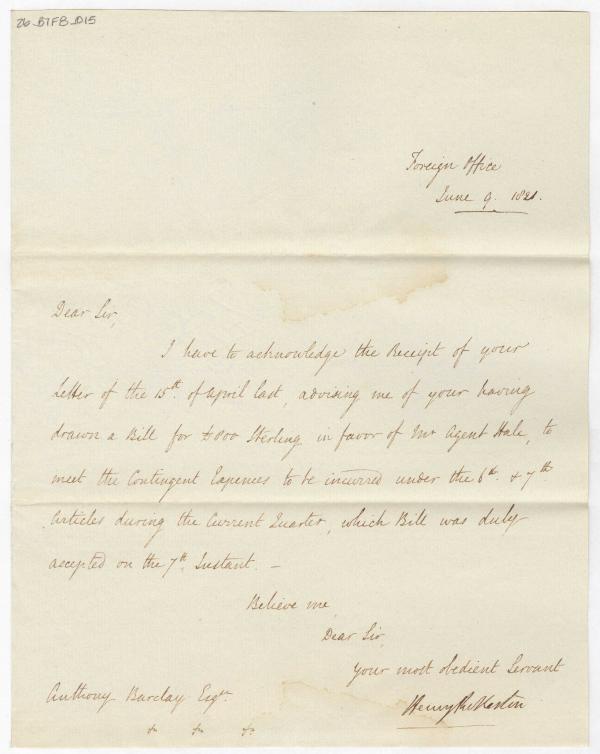 26_BTFB_D15
Foreign Office
June 9. 1821.
Dear Sir,
I have to acknowledge the Receipt of your
Letter of the 15th. of April last, advising me of your having
drawn a Bill for £800 Sterling in favor of Mr Agent Hale, to
meet the Contingent Expences to be incurred under the 6th. & 7th
Articles during the Current Quarter, which Bill was duly
accepted on the 7th. Instant. –
Believe me,
Dear Sir,
Your most obedient Servant
Henry
Anthony Barclay Esqr.